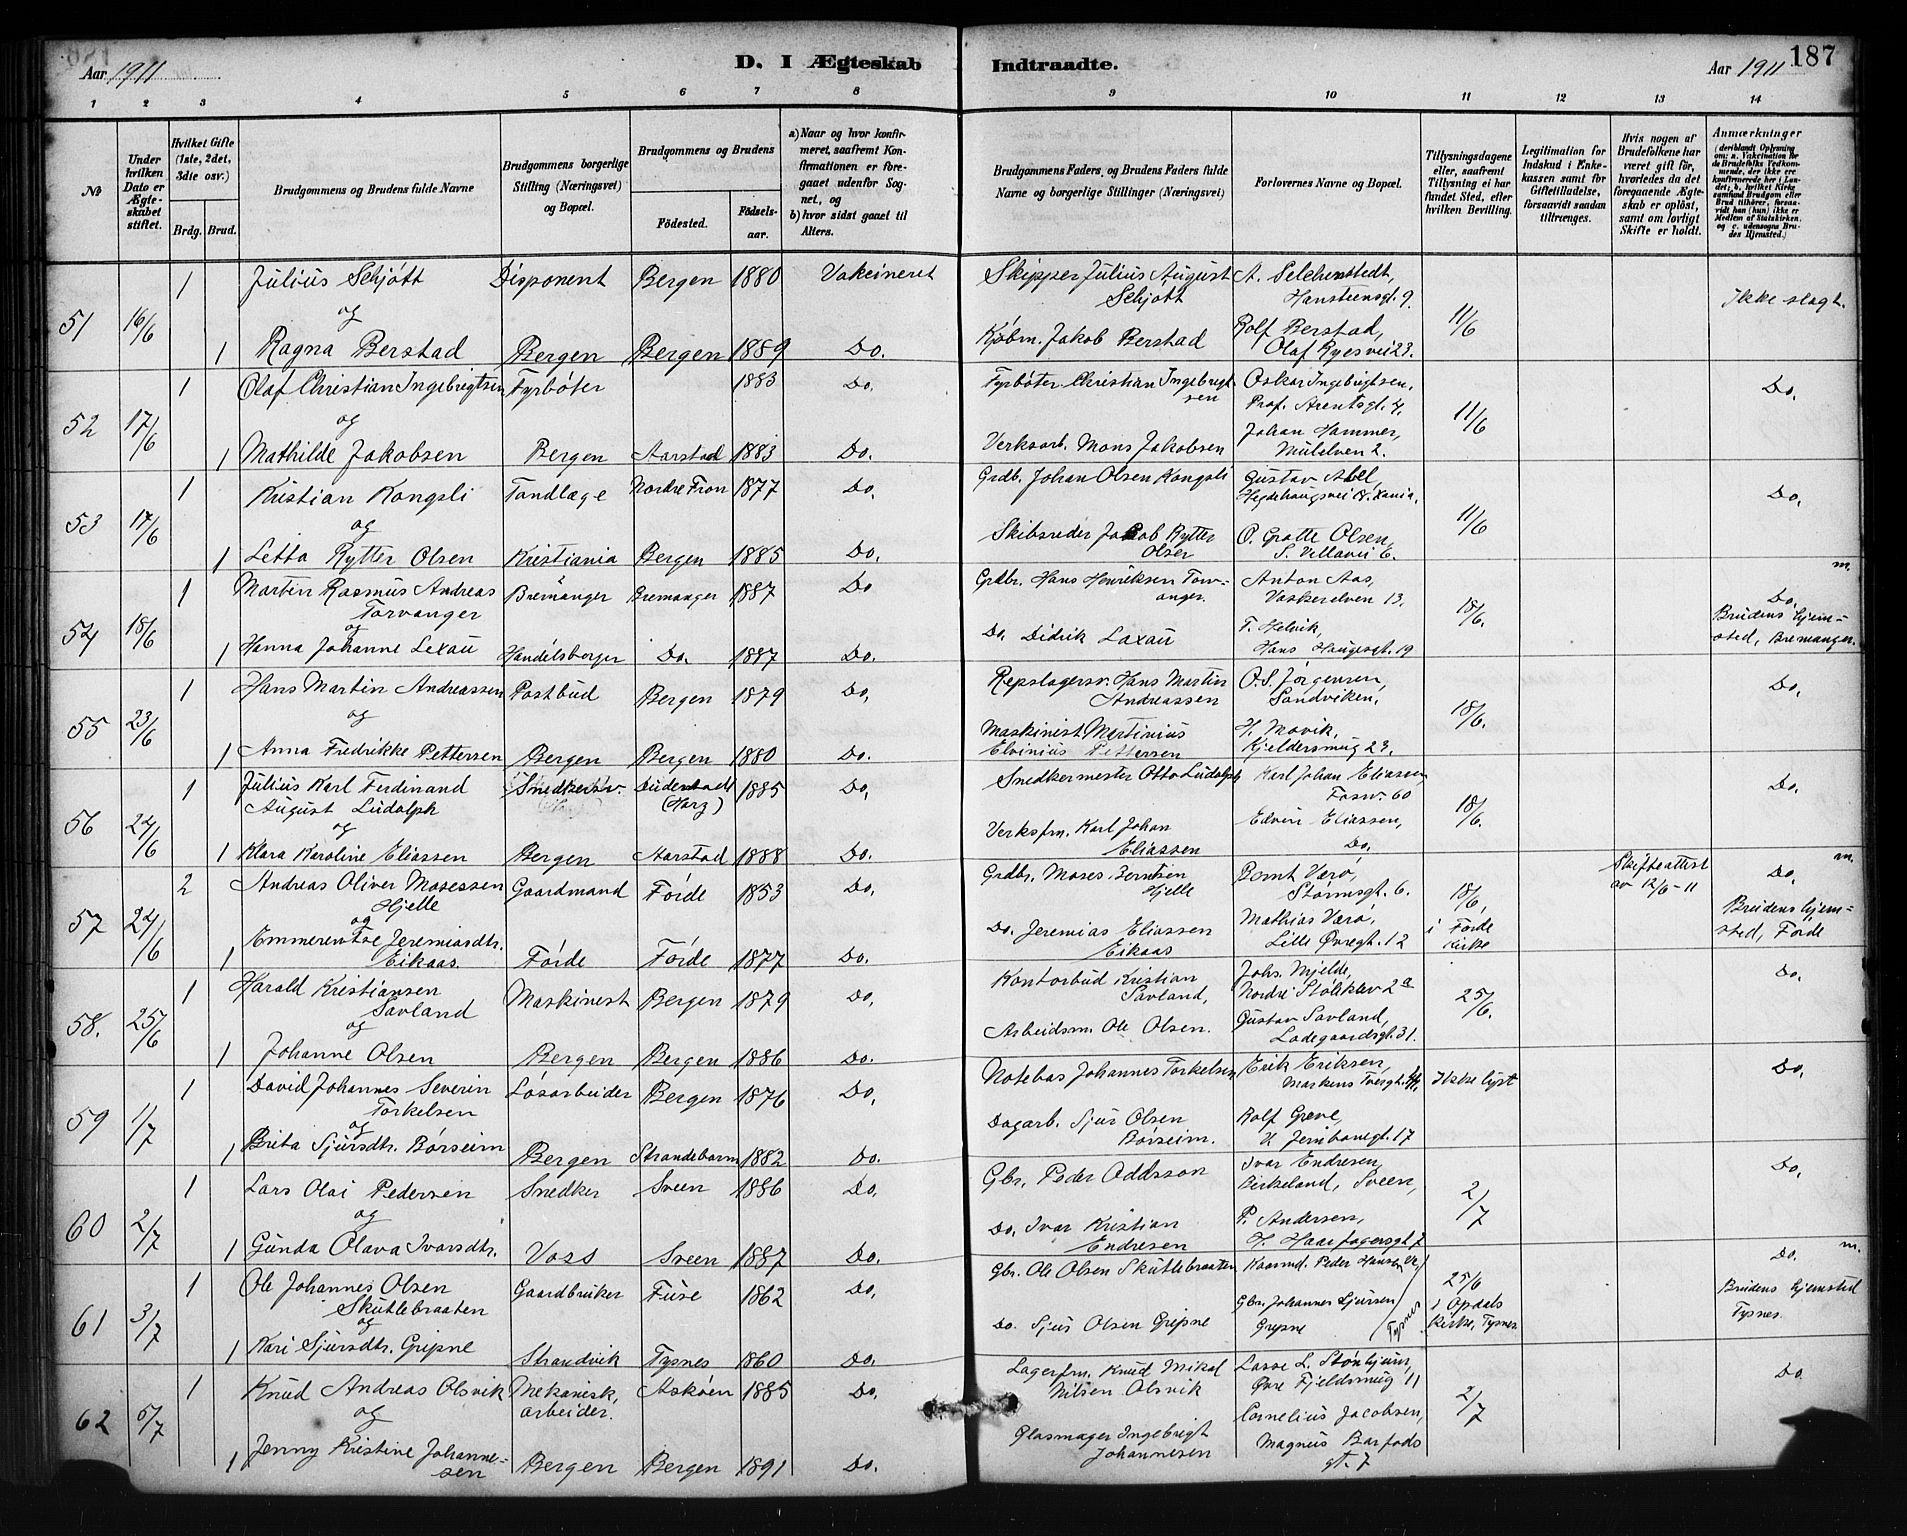 Aar 1911 D. I Ægteskab Indtraadte. Aar 1911 187
1 2 3 4 5 6 7 8 9 10 11 12 13 14
No
Under hvilken Dato er Ægteskabet stiftet.
Hvilket Gifte (1ste, 2det, 3die osv.)
Brdg. Brud.
Brudgommens og Brudens fulde Navne
Brudgommens borgerlige Stilling (Næringsvei) og Bopæl.
Brudgommens og Brudens
Födested. Födselsaar.
a) Naar og hvor konfirmeret, saafremt Konfirmationen er foregaaet udenfor Sognet, og
b) hvor sidst gaaet til Alters.
Brudgommens Faders, og Brudens Faders fulde Navne og borgerlige Stillinger (Næringsvei)
Forlovernes Navne og Bopæl.
Tillysningsdagene eller, saafremt Tillysning ei har fundet Sted, efter hvilken Bevilling.
Legitimation for Indskud i Enkekassen samt for Giftetilladelse, forsaavidt saadan tiltrænges.
Hvis nogen af Brudefolkene har været gift för, hvorledes da det foregaaende Ægteskab er oplöst, samt om lovligt Skifte er holdt.
Anmærkninger (deriblandt Oplysning om: a. Vakcination for de Brudefolks Vedkommende, der ikke ere konfirmerede her i Landet; b. hvilket Kirkesamfund Brudgom eller Brud tilhører, forsaavidt han (hun) ikke er Medlem af Statskirken, og c. udensogns Brudes Hjemsted.)
51 16/6 1 Julius Schjött Disponent Bergen 1880 Vakcineret Skipper Julius August Schjött A. Selchenstedt, Hansteensgt. 9. 11/6 Ikke slagt.
og
1 Ragna Berstad Bergen Bergen 1889 Do. Kjøbm. Jakob Berstad Rolf Berstad, Olaf Ryesvei 23.
52 17/6 1 Olaf Christian Ingebrigtsen Fyrbøter 1883 Do. Fyrbøter Christian Ingebrigtsen Oskar Ingebrigtsen, Prof. Arentsgt. 4, 11/6 Do.
og
1 Mathilde Jakobsen Bergen Aarstad 1883 Do. Verksarb. Mons Jakobsen Johan Hammer, Mulelven 2.
53 17/6 1 Kristian Kongsli Tandlæge Nordre Fron 1877 Do. Grdb. Johan Olsen Kongsli Gustav Abel, Hegdehaugsvei Xania. 11/6 Do.
og
1 Letta Rytter Olsen Kristiania Bergen 1885 Do. Skibsreder Jakob Rytter Olsen O. Gratte Olsen, S. Villavei 6.
54 18/6 1 Martin Rasmus Andreas Torvanger Bremanger Bremanger 1887 Do Grdbr. Hans Henriksen Torvanger. Anton Aas, Vaskerelven 13. 18/6. Do. m.
og
1 Hanna Johanne Lexau Handelsborger Do. 1887 Do. Do. Didrik Laxau T. Helvik, Hans Haugesgt. 19 Brudens hjemsted, Bremanger.
55 23/6 1 Hans Martin Andreassen Postbud Bergen 1879 Do. Repslagersv. Hans Martin Andreassen O. S. Jörgensen, Sandviken, 18/6. Do.
og
1 Anna Fredrikke Pettersen Bergen Bergen 1880 Do. Maskinist Martinius Elvinius Pettersen H. Movik, Kjeldersmug 23.
56 24/6 1 Julius Karl Ferdinand August Ludolph Snedkersv. Duderstadt (Harz) 1885 Do, Snedkermester Otto Ludolph Karl Johan Eliassen, Fosw. 60 18/6. Do.
og
1 Klara Karoline Eliassen Bergen Aarstad 1888 Do. Verksfm. Karl Johan Eliassen Edvin Eliassen, Do.
57 24/6 2 Andreas Oliver Mosessen Hjelle Gaardmand Förde 1853 Do. Grdbr. Moses Berntsen Hjelle Bernt Værø, Størmsgt. 6. 18/6, i Förde Kirke Skifteattest av 12/6-11 Do. m.
og
1 Emmerentse Jeremiasdtr. Eikaas. Förde Förde 1877 Do. Do. Jeremias Eliassen Eikaas Mathias Værø, Lille Øvregt. 12 Brudens hjemsted, Förde
58. 25/6 1 Harald Kristiansen Savland Maskinist Bergen 1879 Do. Kontorbud Kristian Savland, Johs. Mjelde, Nordre Støleklev 2a 25/6. Do.
og
1 Johanne Olsen Bergen Bergen 1886 Do. Arbeidsm. Ole Olsen. Gustav Savland, Ladegaardsgt. 31.
59 1/7 1 David Johannes Severin Torkelsen Løsarbeider Bergen 1876 Do, Notebas Johannes Torkelsen Erik Eriksen, Markens Tvergt. Ikke lyst Do.
og
1 Brita Sjursdtr. Børseim Bergen Strandebarm 1882 Do. Dagarb. Sjur Olsen Børseim. Rolf Greve, N Jernbanegt. 17
60 2/7 1 Lars Olai Pedersen Snedker Sveen 1886 Do, Gbr. Peder Oddsson Ivar Endresen, Birkeland, Sveen, 2/7 Do.
og
1 Gunda Olava Ivarsdtr. Voss Sveen 1887 Do. Do. Ivar Kristian Endresen P. Andersen, H. Haarfagersgt 7
61 3/7 1 Ole Johannes Olsen Skutlebraaten Gaardbruker Fuse 1862 Do. Gbr. Ole Olsen Skutlebraaten Kaarmd. Peder Hansen 25/6 i Opdals Kirke, Tysnes Do. m.
og
1 Kari Sjursdtr. Gripne Strandvik Tysnes 1860 Do. Do. Sjur Olsen Gripne Gbr. Johannes Sjursen Gripne Tysnes Brudens hjemsted Tysnes.
62 5/7 1 Knud Andreas Olsvik Mekanisk, arbeider. Askøen 1885 Do. Lagerfm. Knud Mikal Nilsen Olsvik Lasse L. Stønjum, Øvre Fjeldsmug 11 2/7 Do.
og
1 Jenny Kristine Johannesen Bergen Bergen 1891 Do. Glasmager Ingebrigt Johannesen Cornelius Jacobsen, Magnus Barfods gt. 7